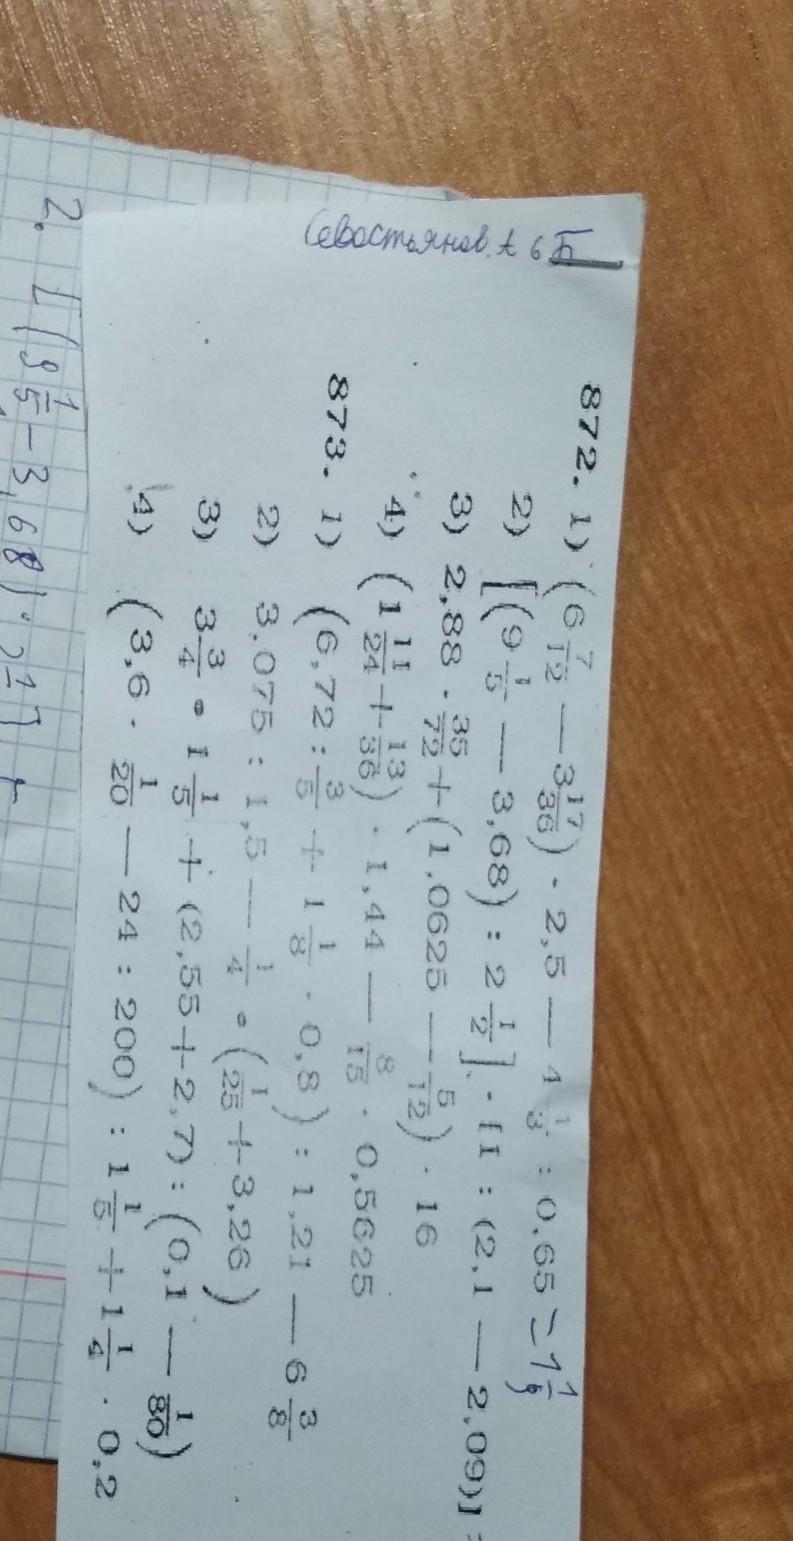 Севостьянов. А 6 Б
872. 1) (6 7/12 — 3 17/36) · 2,5 — 4 1/3 : 0,65 = 1 1/9
2) [(9 1/5 — 3,68) : 2 1/2] · [1 : (2,1 — 2,09)] :
3) 2,88 · 35/72 + (1,0625 — 5/12) · 16
4) (1 11/24 + 13/36) · 1,44 — 8/15 · 0,5625
873. 1) (6,72 : 3/5 + 1 1/8 · 0,8) : 1,21 — 6 3/8
2) 3,075 : 1,5 — 1/4 • (1/25 + 3,26)
3) 3 3/4 • 1 1/5 + (2,55 + 2,7) : (0,1 — 1/80)
4) (3,6 · 1/20 — 24 : 200) : 1 1/5 + 1 1/4 · 0,2
2. [(9 1/5 - 3,68) : 2 1/